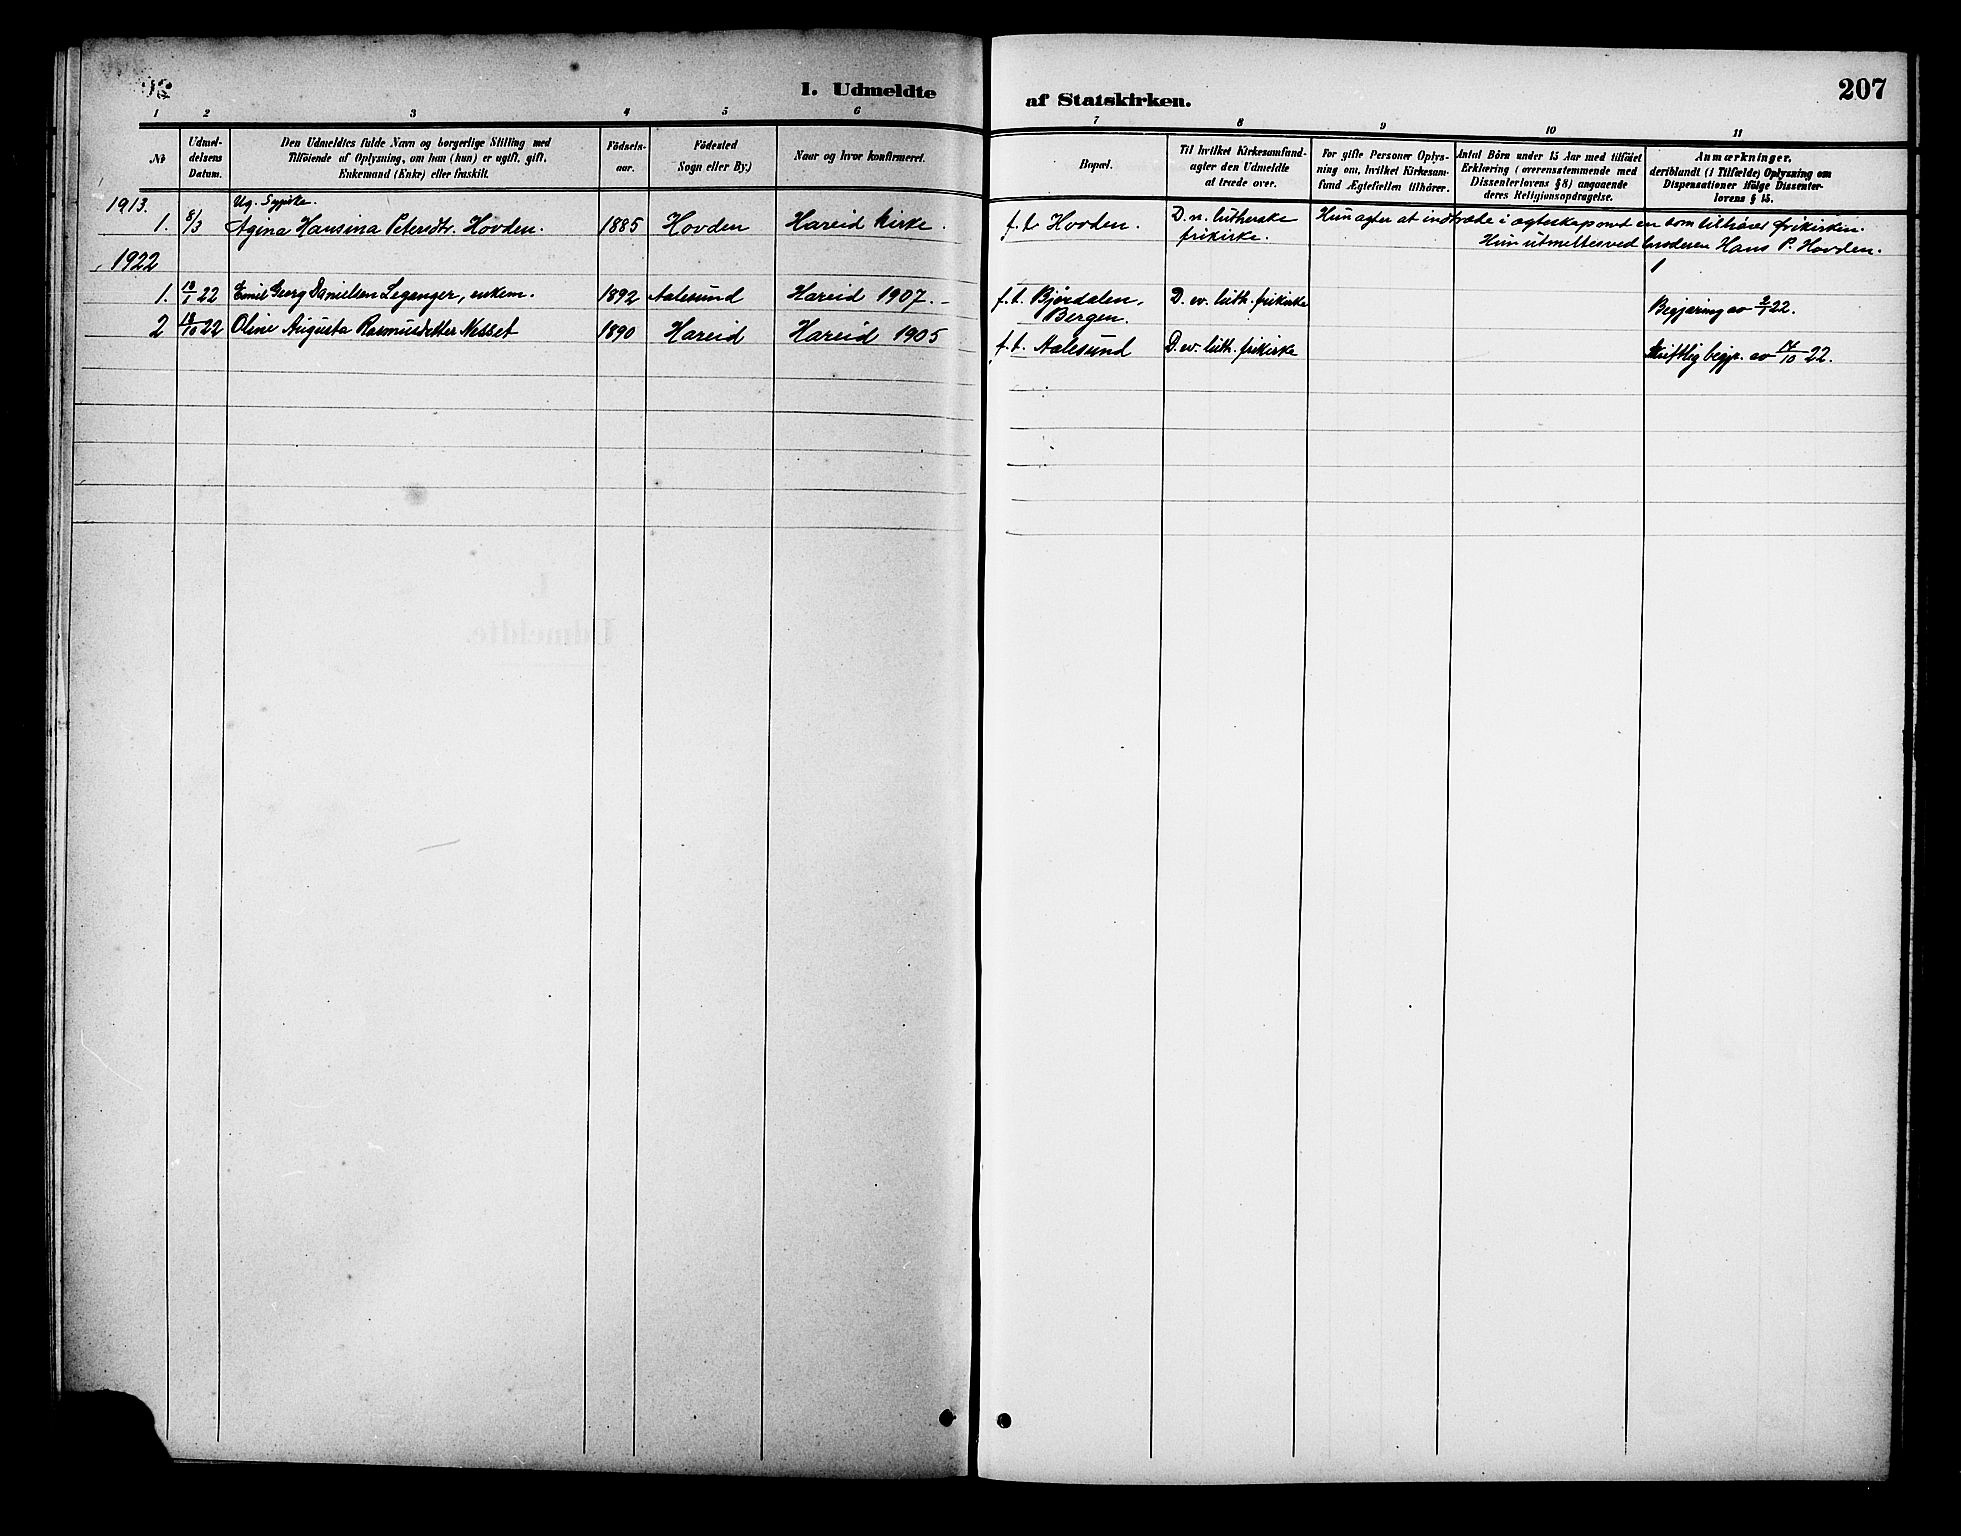 I. Udmeldte
1 2 3 4 5 6
No
Udmel-
delsens
Datum.
Den Udmeldtes fulde Navn og borgerlige Stilling med
Tilföiende af Oplysning, om han (hun) er ugift, gift,
Enkemand (Enke) eller fraskilt.
Födsels-
aar.
Födested
(Sogn eller By.)
Naar og hvor konfirmeret.
1913.
Ug. Sypike.
1. 8/3 Agina Hansina Petersdtr. Hovden. 1885 Hovden Hareid kirke.
1922
1. 18/1 22 Emil Georg Danielsen Leganger, enkem. 1892 Aalesund Hareid 1907.-
2 18/10 22 Oline Augusta Rasmusdatter Nesset 1890 Hareid Hareid 1905
af Statskirken.
207
7 8 9 10 11
Bopæl.
Til hvilket Kirkesamfund
agter den Udmeldte
at træde over.
For gifte Personer Oplys-
ning om, hvilket Kirkesam-
fund Ægtefællen tilhörer.
Antal Börn under 15 Aar med tilföiet
Erklæring (overensstemmende med
Dissenterlovens § 8) angaaende
deres Religionsopdragelse.
Anmærkninger,
deriblandt (i Tilfælde) Oplysning om
Dispensationer ifölge Dissenter-
lovens § 15.
f. t. Hovden. D. n. lutherske Hun agter at indtræde i ægteskap med en som tilhører frikirken.
frikirke. Hun utmeltes ved broderen Hans P. Hovden.
f. t. Bjørdalen, D. ev. luth. frikirke
Bergen. Begjæring av 2/1 22.
f. t. Aalesund D. ev. luth. frikirke Skriftlig begjr. av 14/10 22.